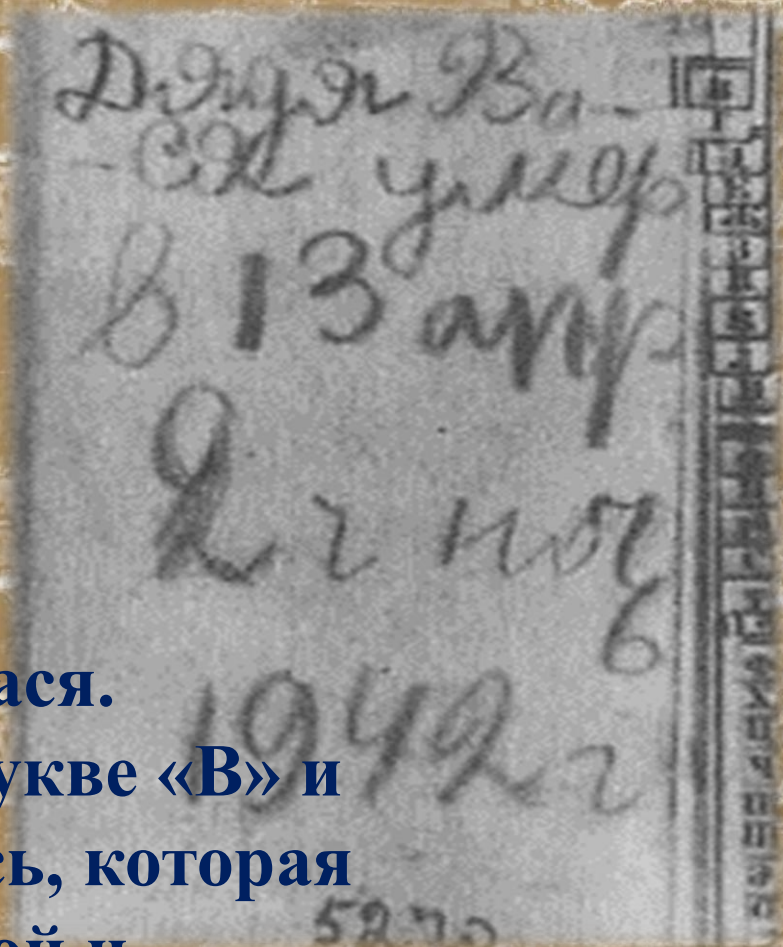 Дядя Ва-
-ся умер
в 13 апр
2 ч ноч
ь
1942 г
ася.
укве «В» и
сь, которая
ой и